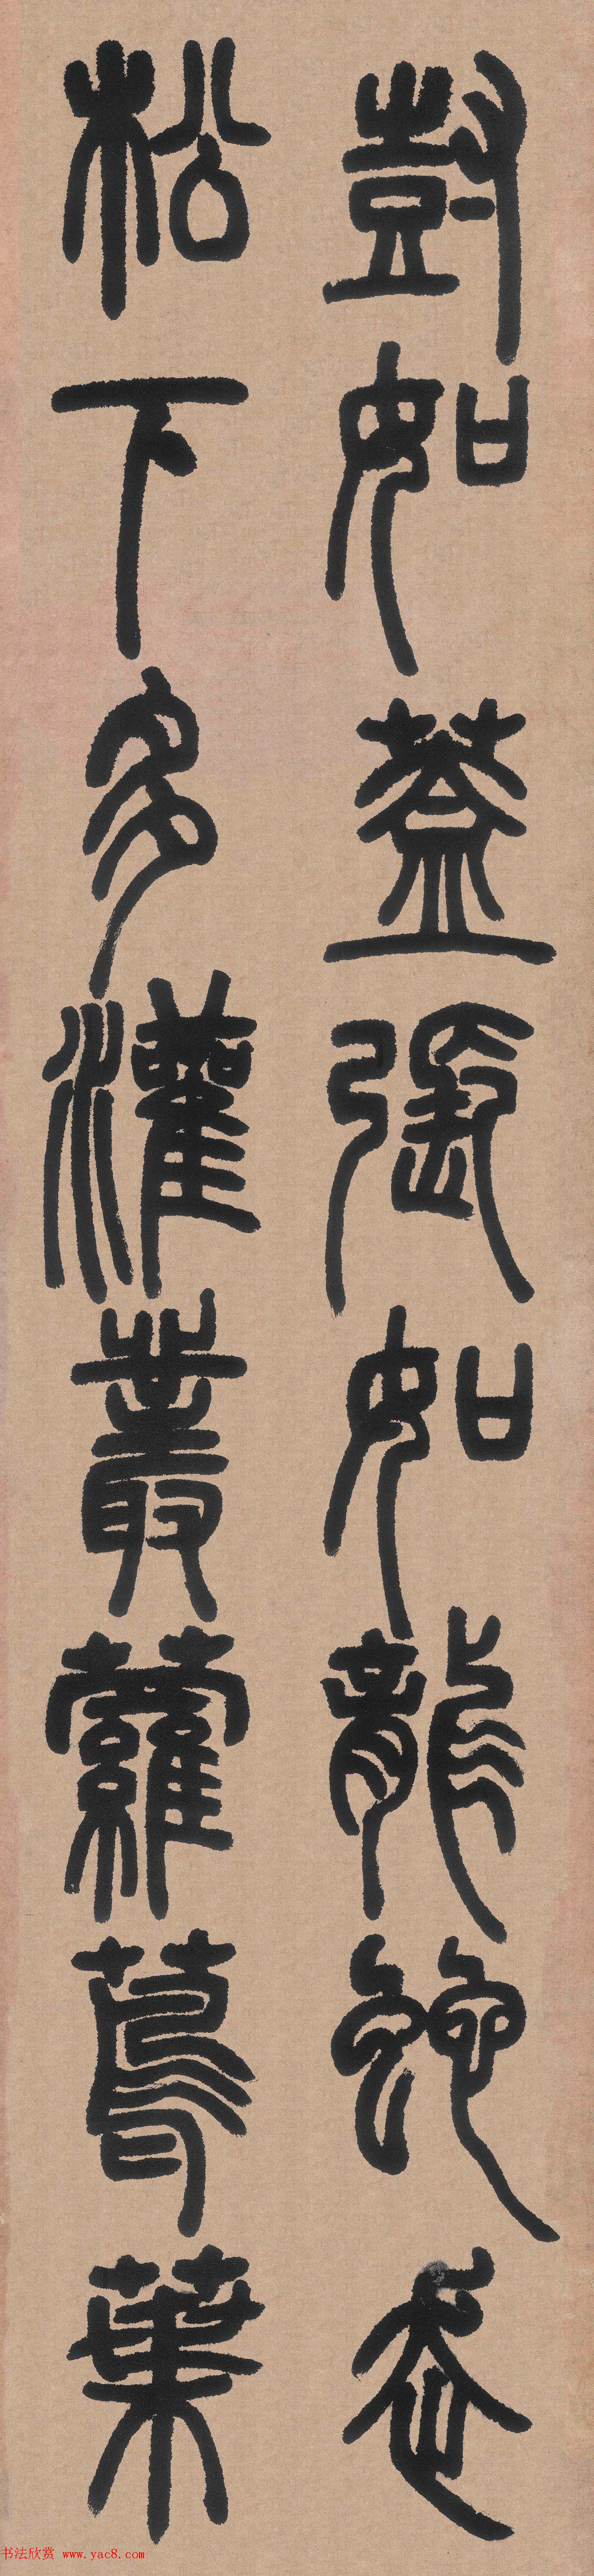 尌如蓋張如龍蛇走
松下多灌叢蘿蔦葉
书法欣赏 www.yac8.com